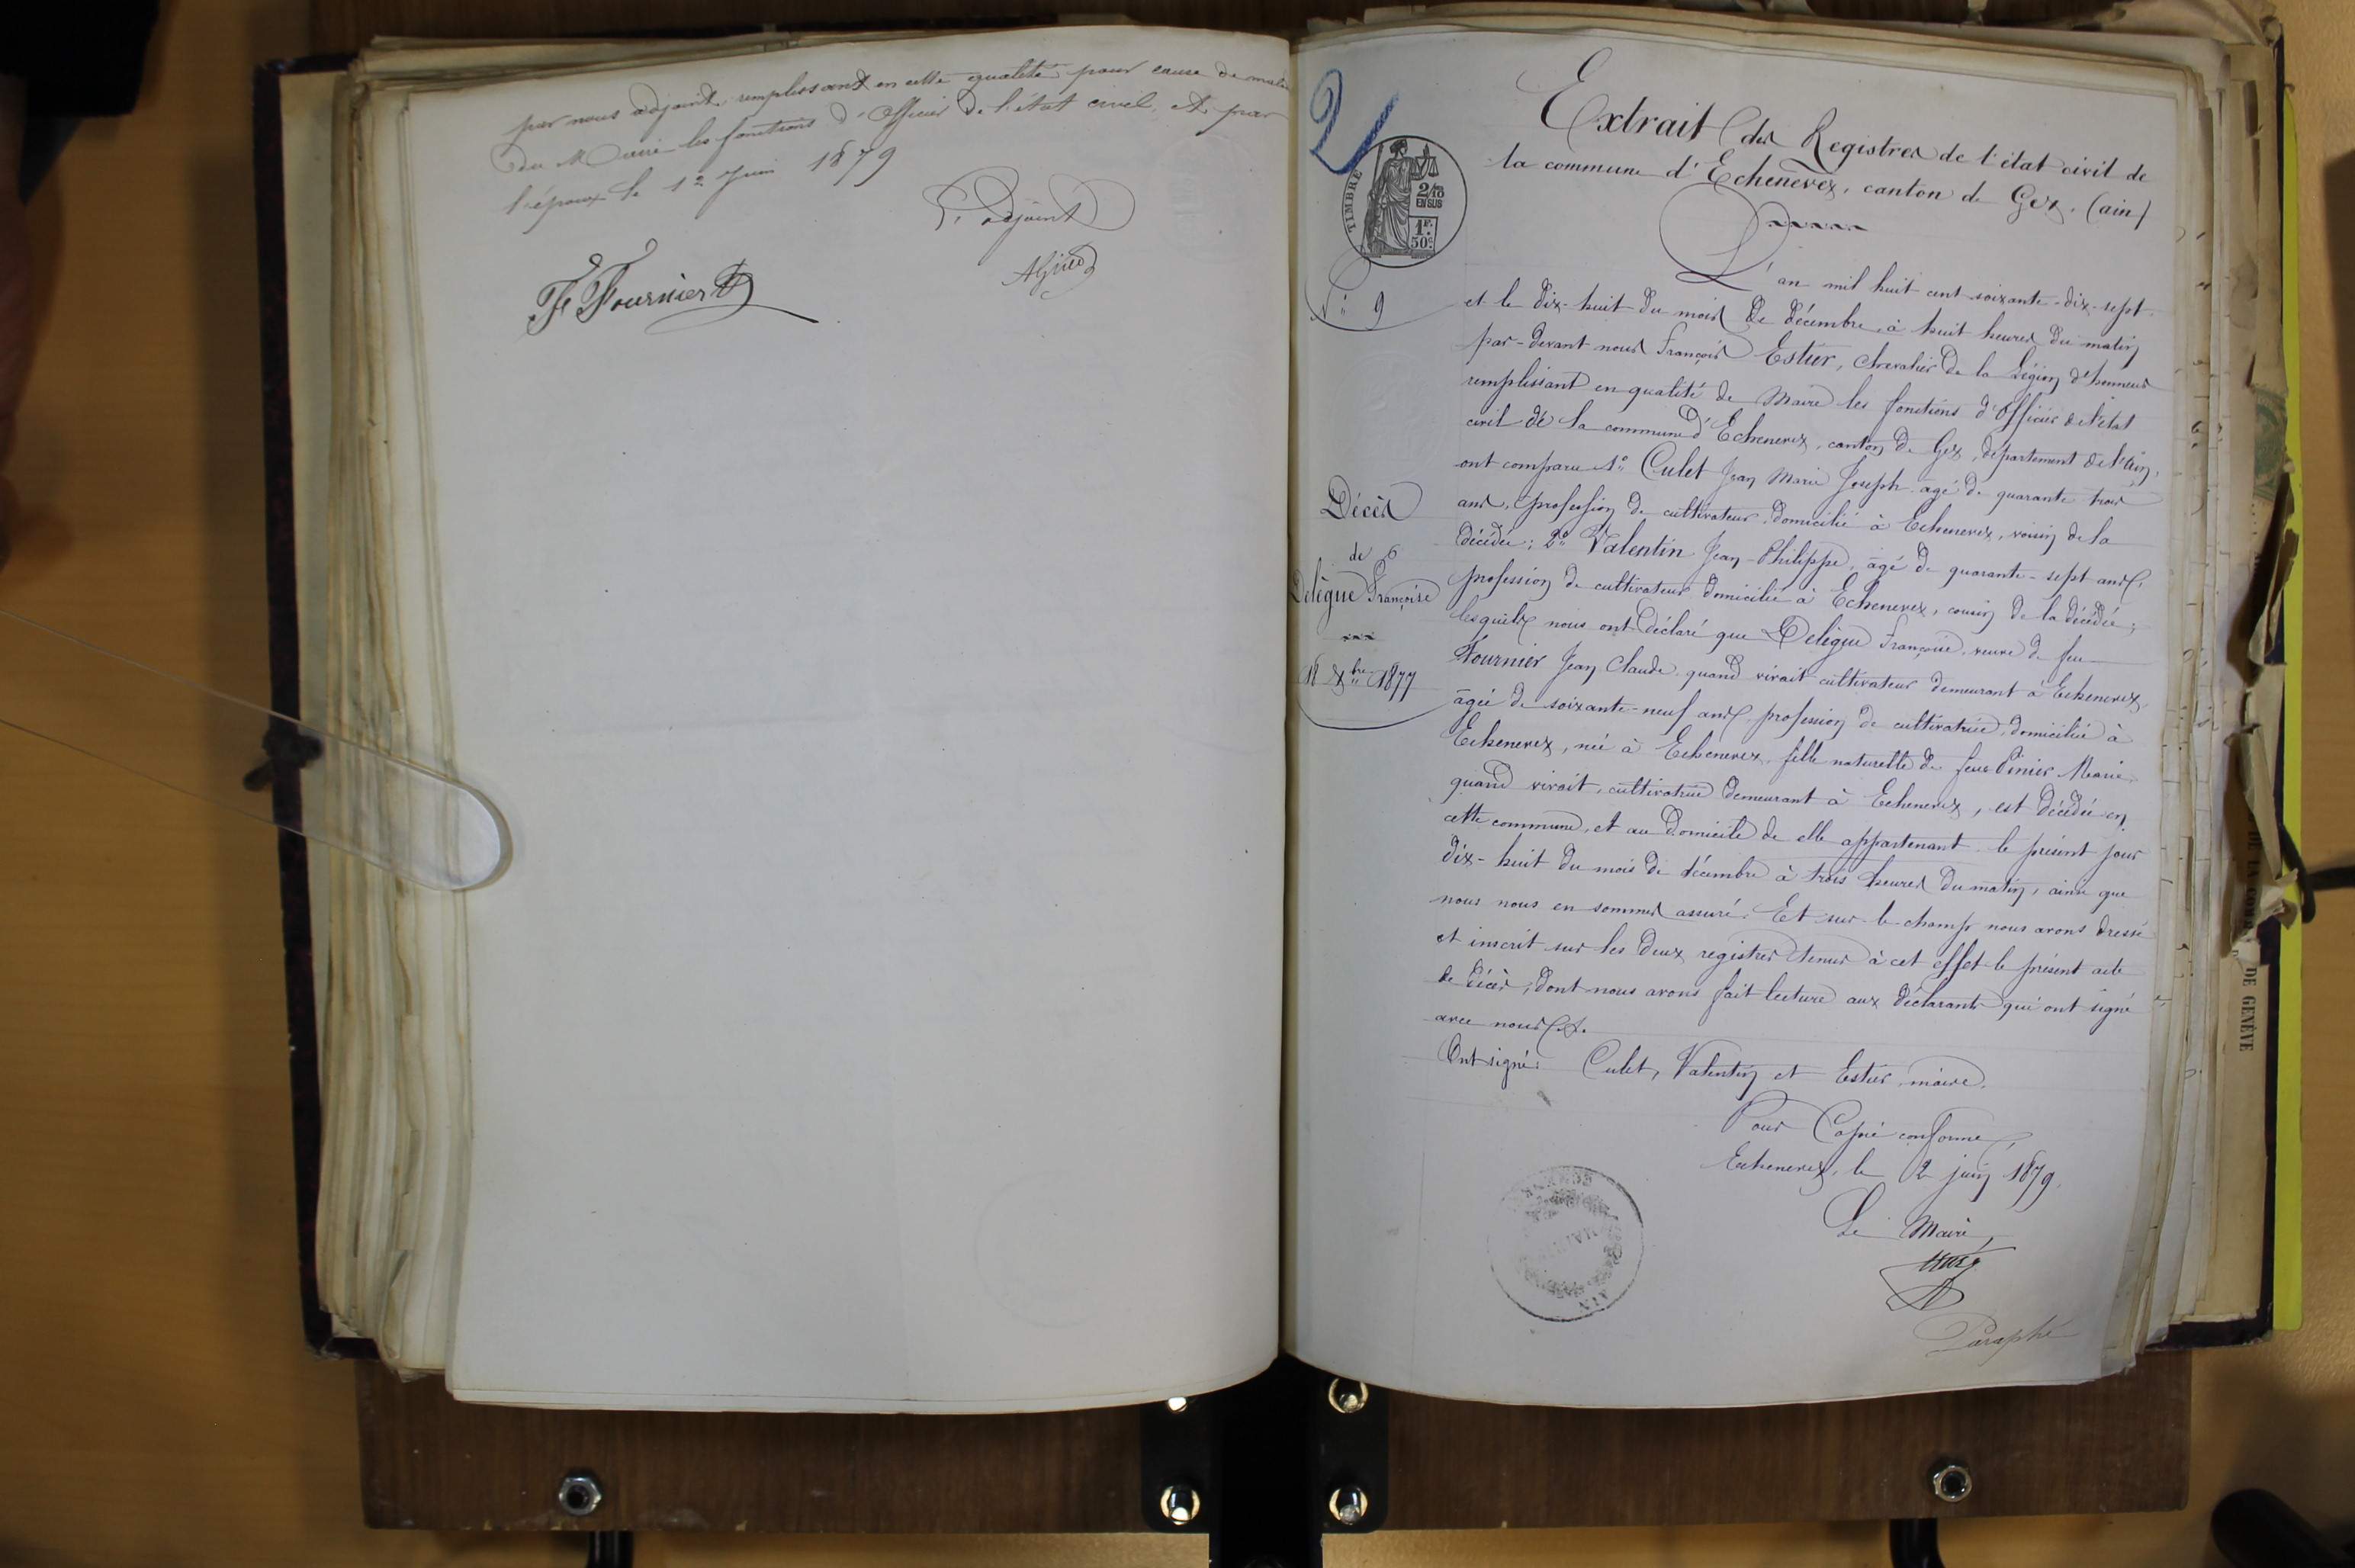 par nous adjoint, remplissant en cette qualité pour cause de
du Maire les fonctions d'Officier de l'état civil, et par
l'époux le 12 Juin 1879
L'adjoint
F. Fournier
2
Extrait des Registres de l'état civil de
la commune d'Echenevex, canton de Gex. (ain)
TIMBRE
2/10
EN SUS
1F.
50c.
N° 9
L'an mil huit cent soixante-dix-sept
et le dix-huit du mois de décembre, à huit heures du matin
par-devant nous François Estier, chevalier de la Légion d'honneur
remplissant en qualité de Maire les fonctions d'Officier de l'état
civil de la commune d'Echenevex, canton de Gex, département de l'Ain,
ont comparu 1° Culet Jean Marie Joseph agé de quarante trois
ans, profession de cultivateur, domicilié à Echenevex, voisin de la
décédée; 2° Valentin Jean-Philippe, âgé de quarante-sept ans,
profession de cultivateur domicilié à Echenevex, cousin de la décédée;
lesquels nous ont déclaré que Delègue Françoise, veuve de feu
Fournier Jean Claude quand vivait cultivateur demeurant à Echenevex,
âgée de soixante-neuf ans, profession de cultivatrice, domiciliée à
Echenevex, née à Echenevex, fille naturelle de feue Pinier Marie
quand vivait, cultivatrice demeurant à Echenevex, est décédée en
cette commune, et au domicile de elle appartenant le présent jour
dix-huit du mois de décembre à trois heures du matin, ainsi que
nous nous en sommes assuré. Et sur-le-champ nous avons dressé
et inscrit sur les deux registres tenus à cet effet le présent acte
de décès, dont nous avons fait lecture aux déclarants qui ont signé
avec nous
Décès
de
Delègue Françoise
18 Xbre 1877
Ont signé: Culet, Valentin et Estier, maire.
Pour Copie conforme,
Echenevex, le 2 juin 1879.
Le Maire,
Paraphé
DE GENÈVE